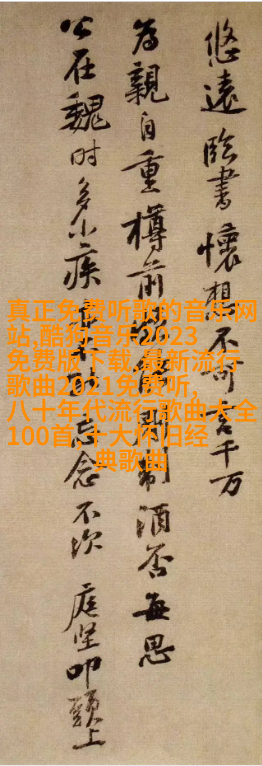 悠遠臨書懷想不可言千万
為親自重樽前制酒否每思
公在魏時多小疾忘念不次 庭堅叩頭上
真正免费听歌的音乐网
站,酷狗音乐2023
免费版下载,最新流行
歌曲2021免费听,
八十年代流行歌曲大全
100首,十大怀旧经
典歌曲